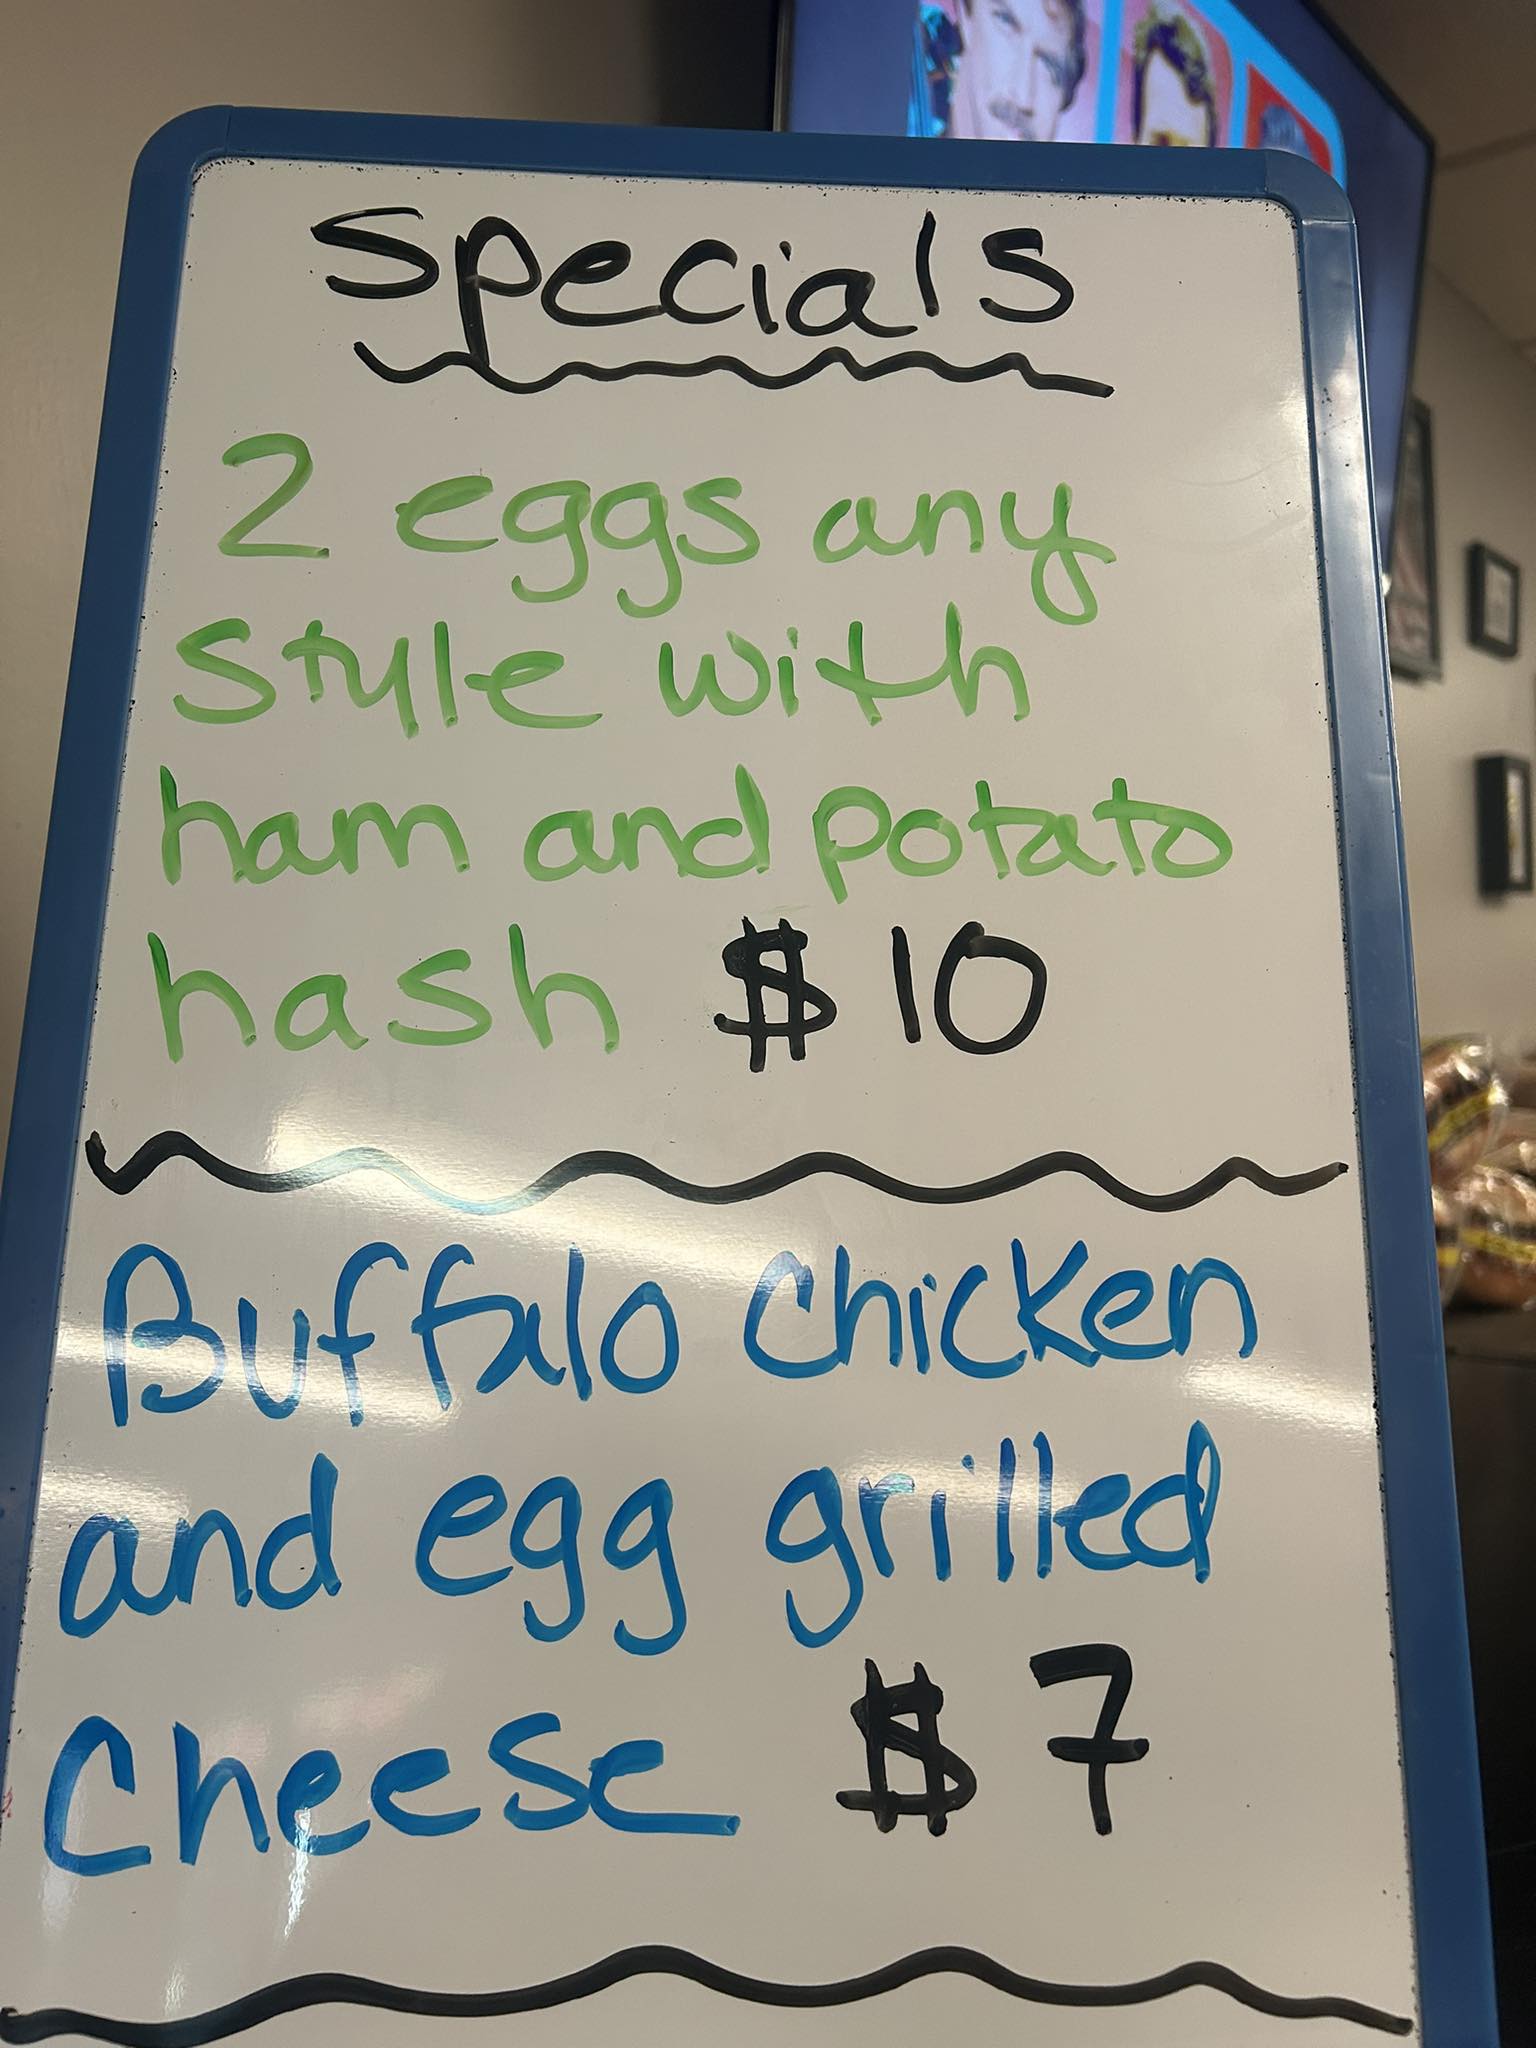 Specials
2 eggs any
style with
ham and potato
hash $10
Buffalo Chicken
and egg grilled
Cheese $7